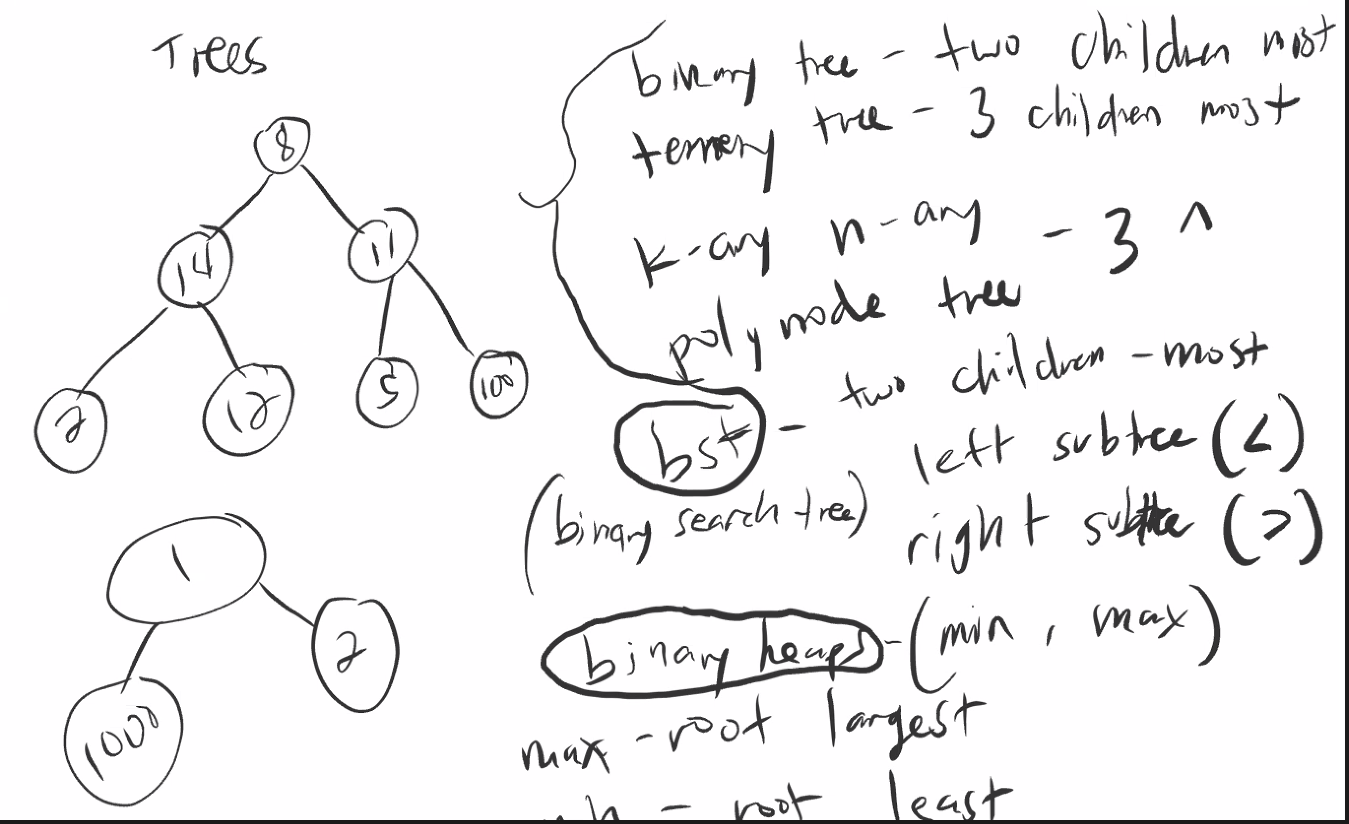 Trees
8
14 11
2 12 5 100
1
2
1000
binary tree - two children most
ternery tree - 3 children most
k-ary n-ary - 3 ^
poly node tree
bst - two children - most
left subtree (<)
(binary search tree) right subtree (>)
binary heaps - (min, max)
max - root largest
- root least